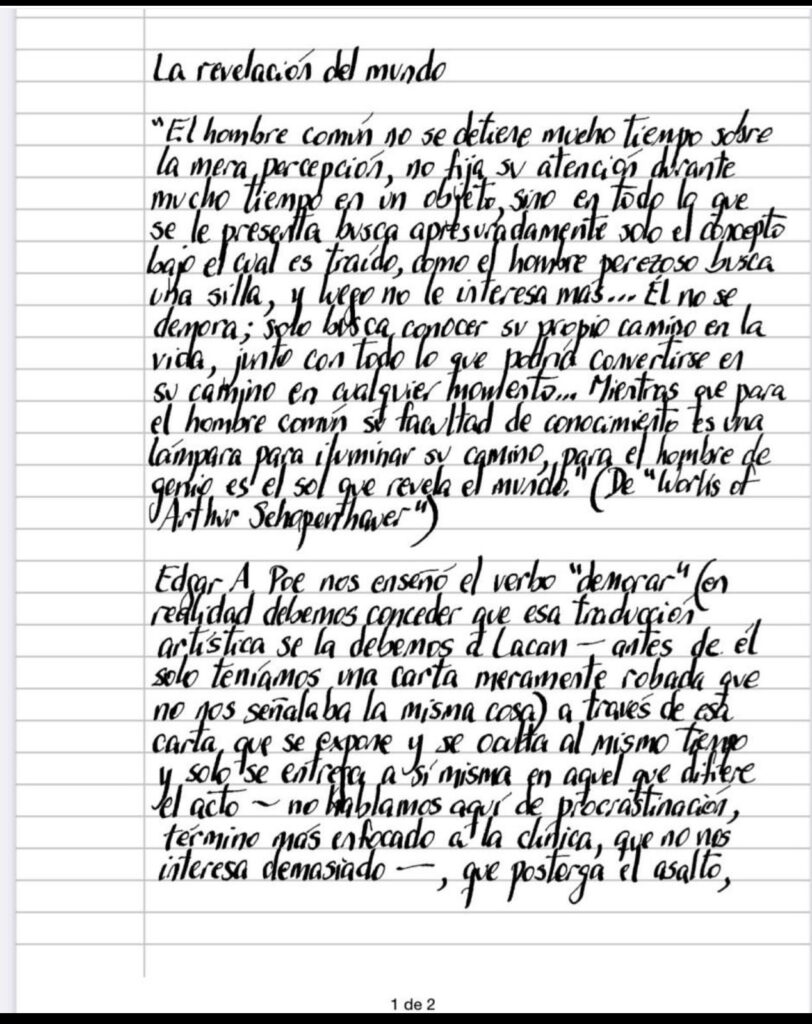 La revelación del mundo
"El hombre común no se detiene mucho tiempo sobre
la mera percepción, no fija su atención durante
mucho tiempo en un objeto, sino en todo lo que
se le presenta busca apresuradamente solo el concepto
bajo el cual es traído, como el hombre perezoso busca
una silla, y luego no le interesa más... Él no se
demora; solo busca conocer su propio camino en la
vida, junto con todo lo que podría convertirse en
su camino en cualquier momento... Mientras que para
el hombre común su facultad de conocimiento es una
lámpara para iluminar su camino, para el hombre de
genio es el sol que revela el mundo." (De "Works of
Arthur Schopenhauer")
Edgar A Poe nos enseñó el verbo "demorar" (en
realidad debemos conceder que esa traducción
artística se la debemos a Lacan – antes de él
solo teníamos una carta meramente robada que
no nos señalaba la misma cosa) a través de esa
carta que se expone y se oculta al mismo tiempo
y solo se entrega a sí misma en aquel que difiere
el acto – no hablamos aquí de procrastinación,
término más enfocado a la clínica, que no nos
interesa demasiado –, que posterga el asalto,
1 de 2